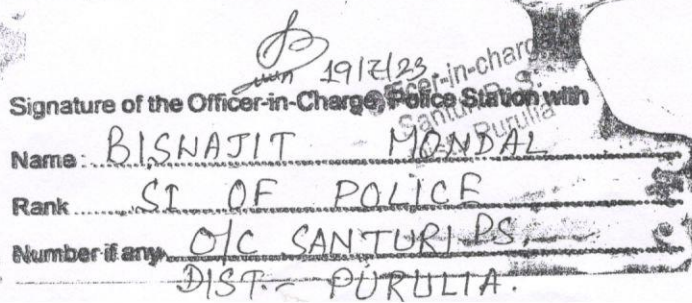 19/7/23
Officer-in-charge
Santuri P.S.
Purulia
Signature of the Officer-in-Charge, Police Station with
Name: BISWAJIT MONDAL
Rank SI OF POLICE
Number if any O/C SANTURI PS.
DIST.- PURULIA.